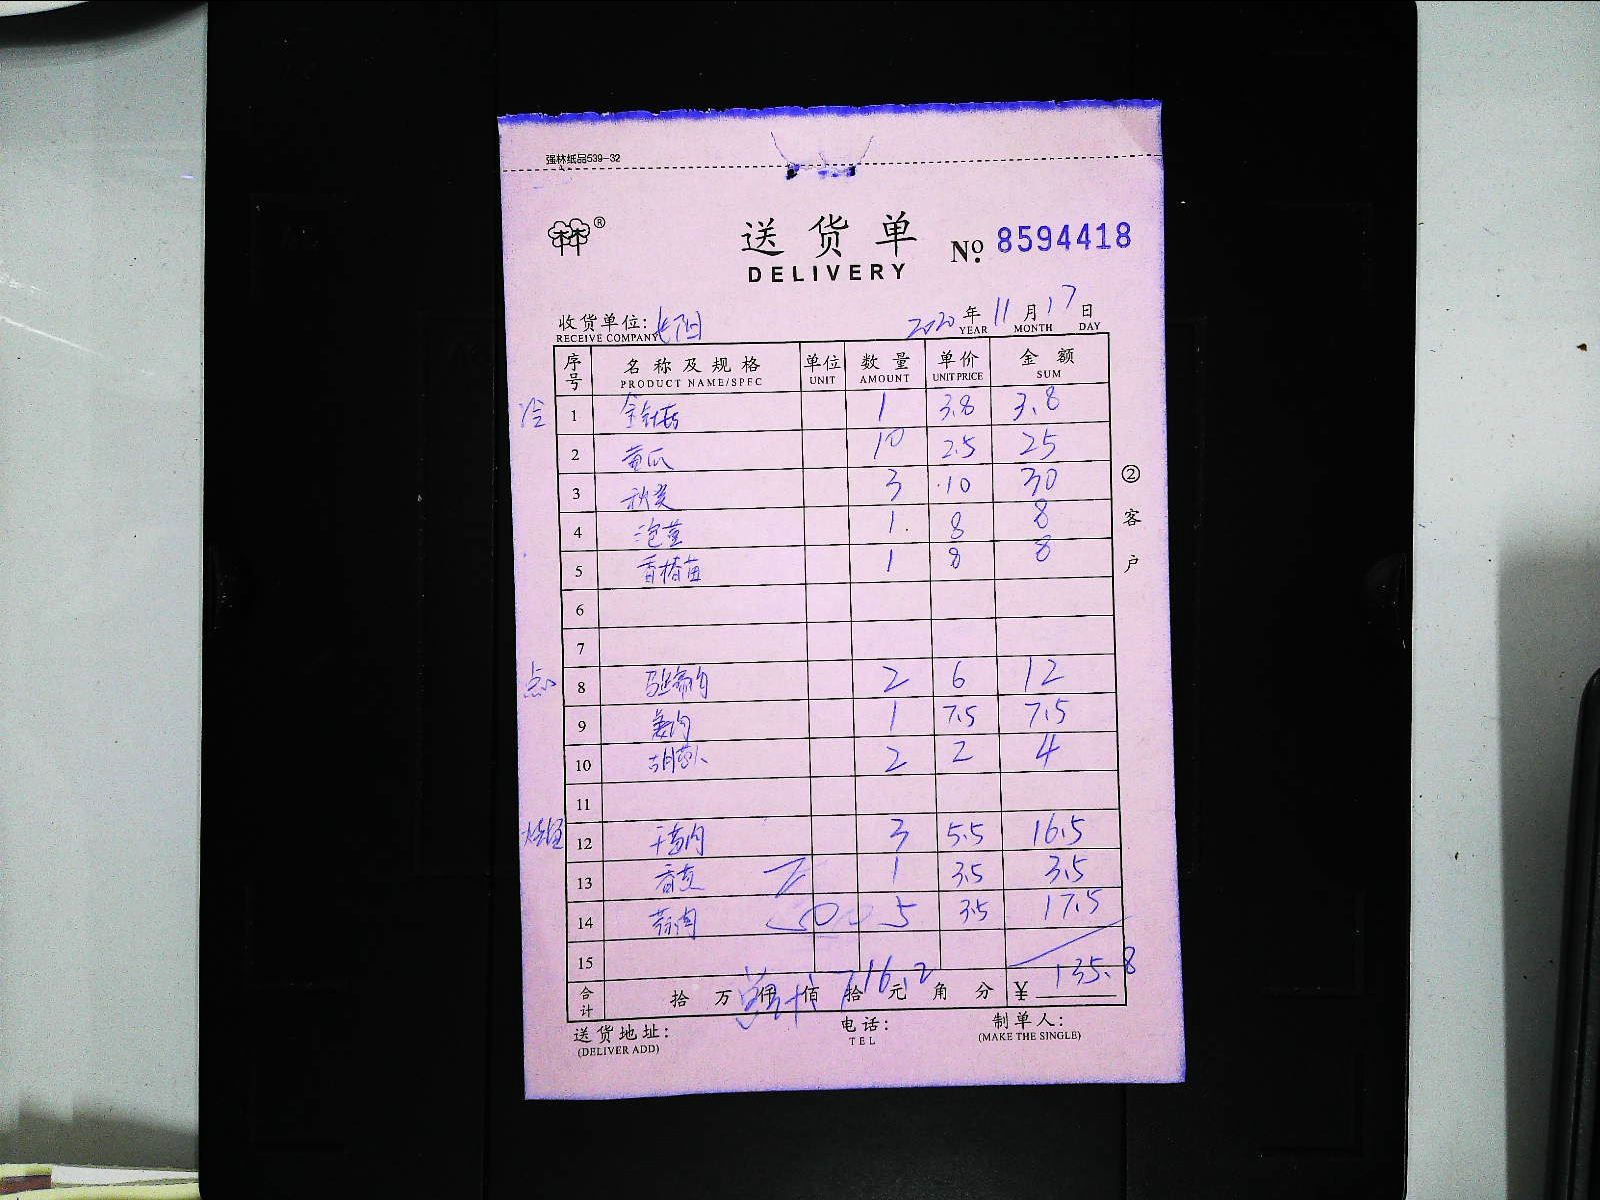 强林纸品539-32
林®
送货单
DELIVERY
No. 8594418
收货单位: 长阳 2020年11月17日
RECEIVE COMPANY YEAR MONTH DAY
序号 名称及规格 单位 数量 单价 金额
PRODUCT NAME/SPEC UNIT AMOUNT UNIT PRICE SUM
冷 1 金针菇 1 3.8 3.8
2 黄瓜 10 2.5 25
3 秋葵 3 10 30
4 泡姜 1 8 8
5 香椿苗 1 8 8
6
7
点心 8 2 6 12
9 姜肉 1 7.5 7.5
10 胡萝卜 2 2 4
11
烧腊 12 干葱肉 3 5.5 16.5
13 香芹 1 3.5 3.5
14 蒜肉 5 3.5 17.5
15
合计 拾万仟佰拾元角分 ¥135.8
总计 716.2
②客户
送货地址: 电话: 制单人:
(DELIVER ADD) TEL (MAKE THE SINGLE)